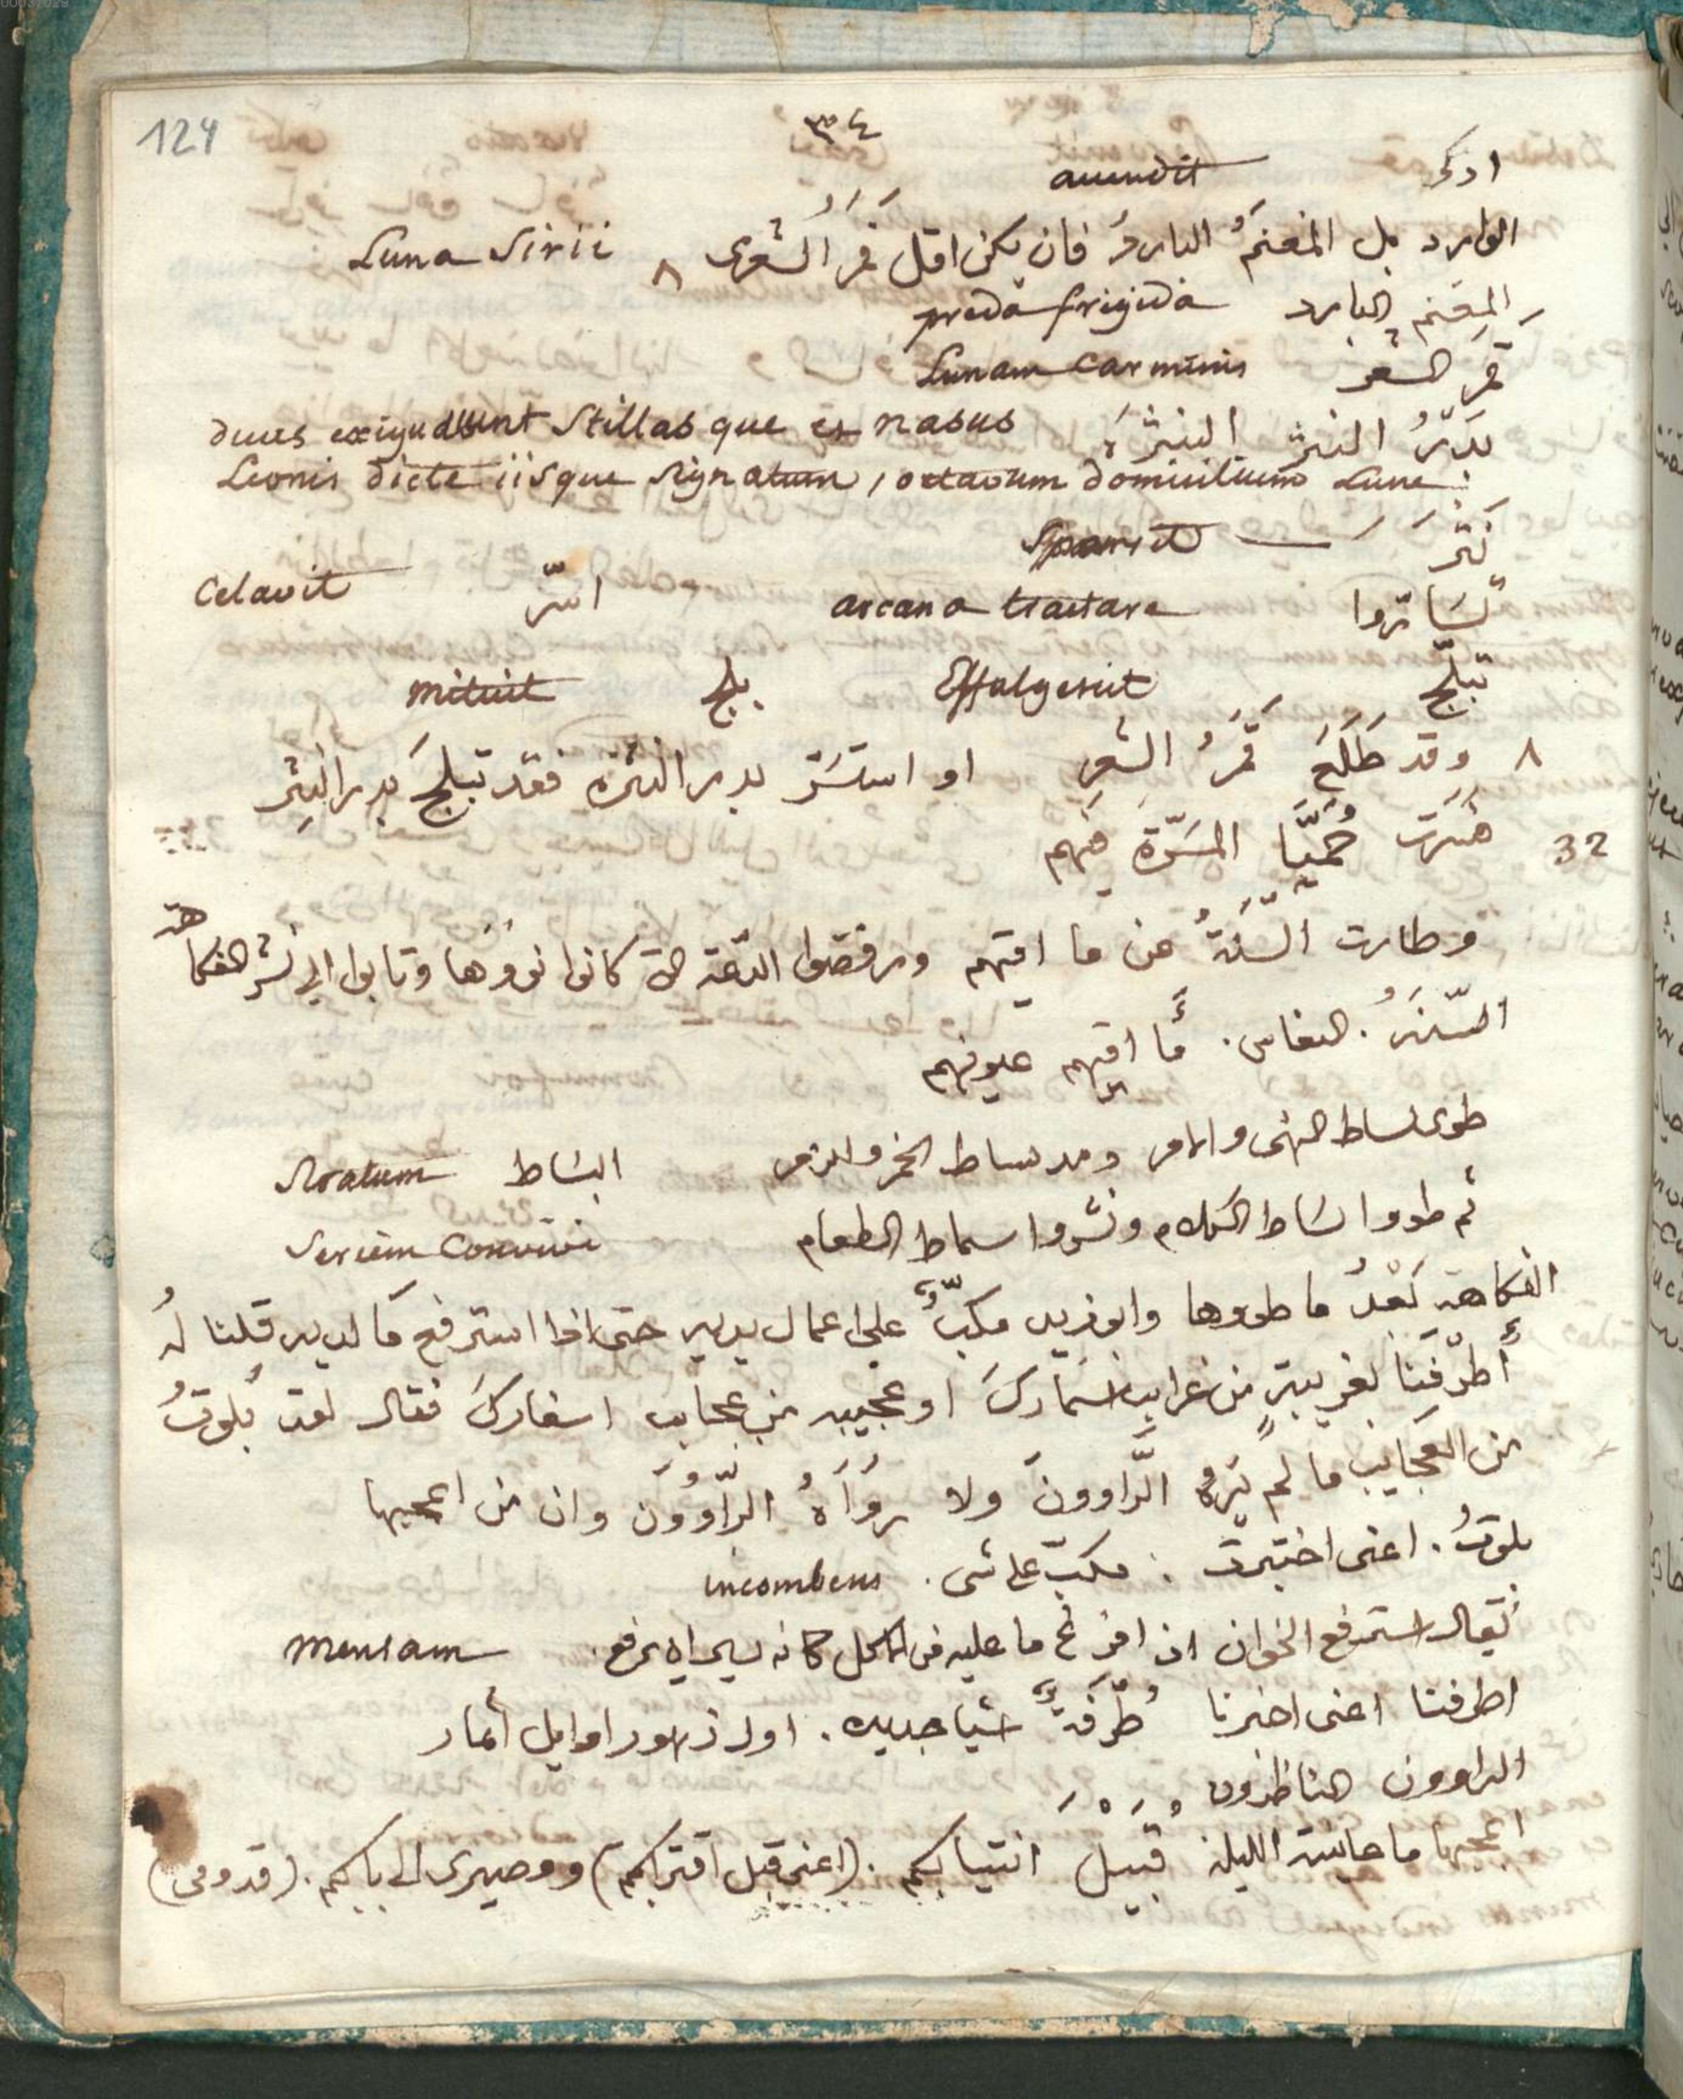 124
٣٤
اذكى accendit
الوارد بل المغنمُ الباردُ فان يكن افل قَمَرُ الشعرى ٨ Luna Sirii
المغنم البارد preda frigida
قمر الشعر Lunam carminis
بدرُ النثر النثرة duas exiguas Stillas que ex nasus
Leonis dicte iisque signatum, octavum domicilium Lune.
نَثَرَ Sparsit
تسَارّوا arcana tractare اسرّ Celavit
تبلّج Effulgesuit بلج mituit
٨ وقد طَلَعَ قَمَرُ الشعرِ او استسَرّ بدر النثرة فقد تبلجَ بدر النثرِ
32 فسَرَت حُمَيَّا المَسَرّة فيهم
وطارت السِّنَةُ عن ما اقيهم ورفضوا الدّعة التي كانوا نووها وثابوا الى نشر الفكاهة
السِّنَةُ. النعاس. مَأ اقيهم عيونهم
طوى بساط النهى والامر ومد بساط الخمر والزمر البسَاط Stratum
ثم طووا بسَاط الكلام ونشروا سماط الطعام Seriem Convivi
الفكاهة بَعْدُ ما طووها وابو زيد مكبٌّ على اعمال يديه حتى اذا استرفع مَا لديه قلنا لهُ
أطرِفنَا بغريبةٍ من غرايب اسمَاركَ او عجيبه من عجايب اسفارك فقال لقد بَلوتُ
من العجَايب ما لم يَرهُ الرَّاوونَ ولا رَوَاهُ الرّاوُونَ وان من اعجبها
بلوتُ. اعنى اختبرت : مكبّ على شى. incombens
يُقال استرفع الخوان اذ افرغ ما عليه من الاكل كانه يسال ان يرفع. mensam
اطرفنا اعنى اخبرنا طُرْفَةٌ شيا جديد. اول زهور اوايل اثمار
الراوون الناظرون
اعجبها ما عاينته الليلة قُبَيْلَ انتيابكم. (اعنى قبل اقترابكم) ومصيرى الى بابكم. (قدومى)